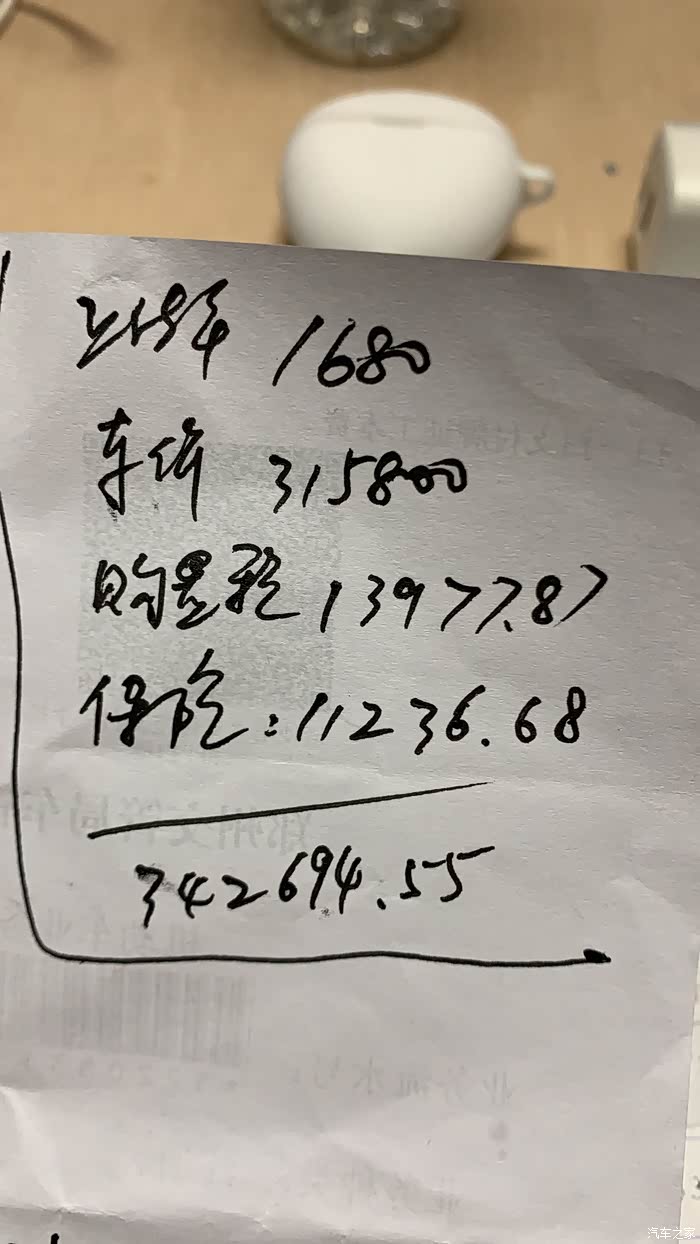 上牌 1680
车价 315800
购置税 13977.87
保险:11236.68
342694.55
汽车之家